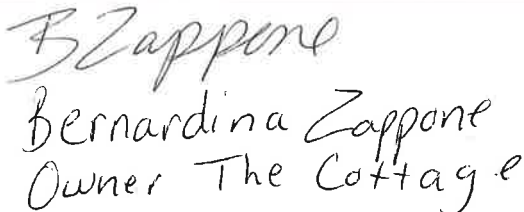 BZappone
Bernardina Zappone
Owner The Cottage